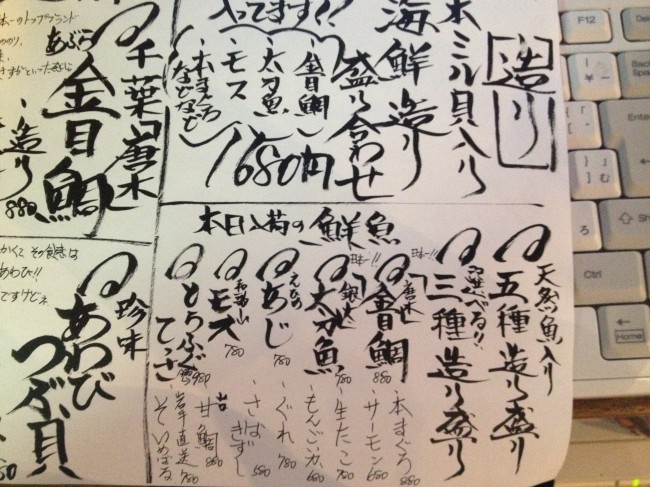 造り
本ミル貝入り
海鮮造り
盛り合わせ
入ってます!!
・金目鯛
・太刀魚
・モス
・本まぐろ
などなど
1680円
千葉「唐木
あぶら
金目鯛
・造り
880
珍味
あわび
つぶ貝
その食感は
あわび!!
ですけどネ
本日入荷の鮮魚
天然魚入り
五種造り盛り
選べる!!
三種造り盛り
日本一!!
金目鯛
880
日本一!!
銀
太刀魚
780
あじ
780
モス
780
とらふぐ
てっさ
980
・本まぐろ
880
・サーモン
680
・生たこ
780
・もんごいか
680
・ぐれ
780
・さば
きずし
580
甘鯛
880
岩手直送
780